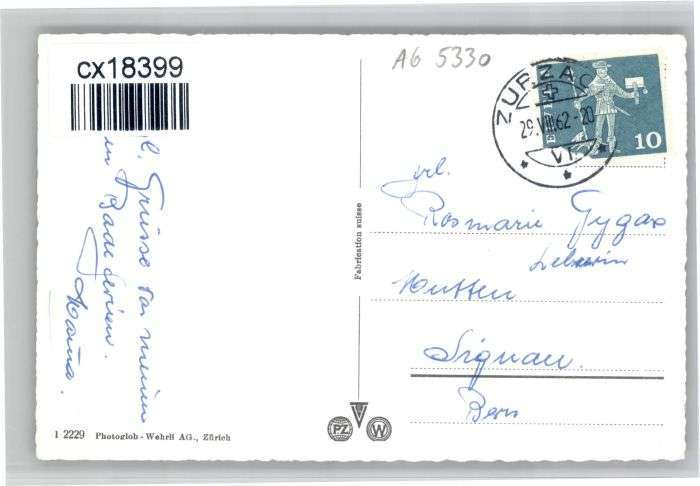 CX18399
AG 5330
ZURZACH
29.VIII.62-20
VT.
10
Frl.
Rosmarie Gygax
Lehrerin
Mutten
Signau.
Bern
Fabrication suisse
l. Grüsse von meinen
Badeferien.
Hanna.
PZ
W
I 2229 Photoglob-Wehrli AG., Zürich